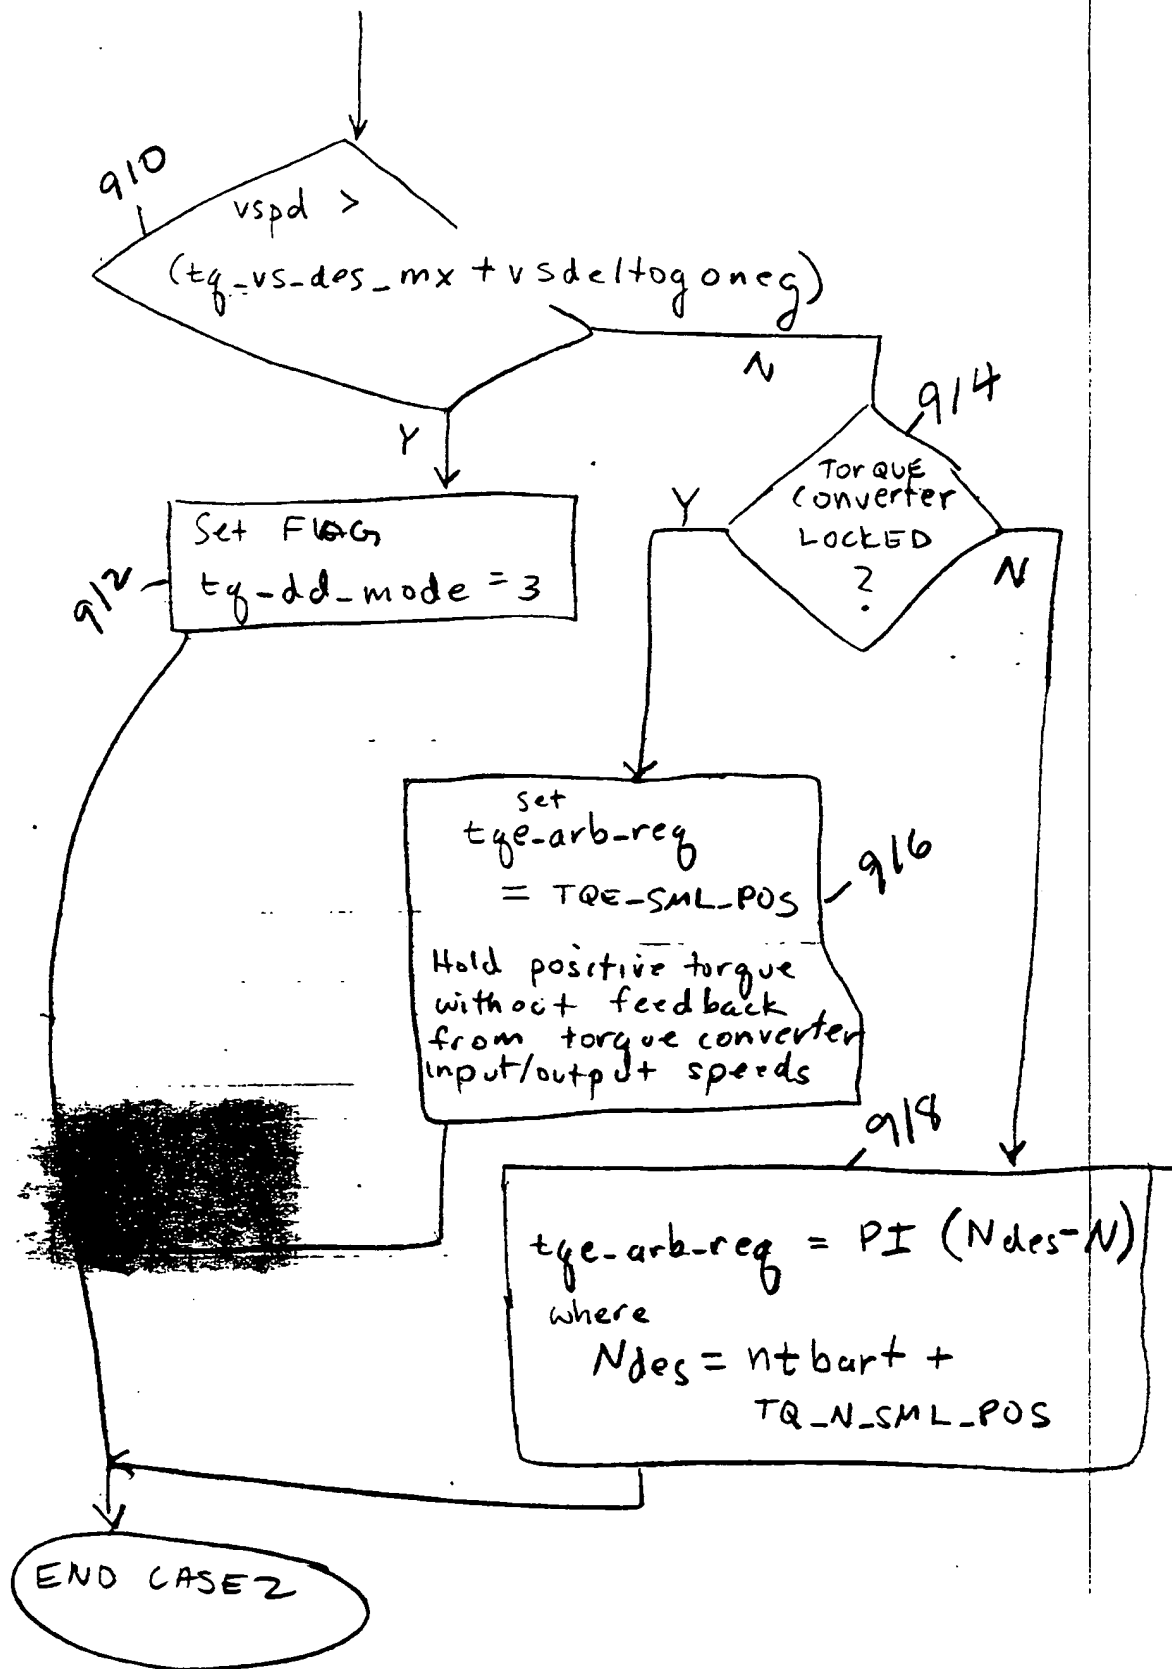 910
vspd >
(tq_vs_des_mx + vsdeltogoneg)
N
914
Y
TORQUE
Converter
LOCKED
?
Y
N
Set FLAG
tq_dd_mode = 3
912
set
tqe_arb_req
= TQE_SML_POS
916
Hold positive torque
without feedback
from torque converter
input/output speeds
918
tqe_arb_req = PI (Ndes-N)
where
Ndes = ntbart +
TQ_N_SML_POS
END CASE2